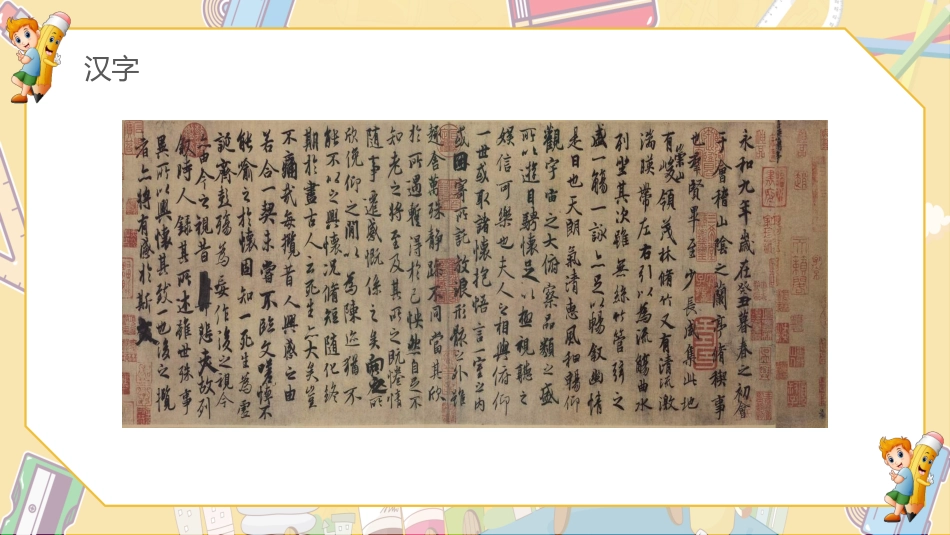 汉字
永和九年歲在癸丑暮春之初會
于會稽山陰之蘭亭脩稧事
也羣賢畢至少長咸集此地
有崇山峻領茂林脩竹又有清流激
湍暎帶左右引以為流觴曲水
列坐其次雖無絲竹管弦之
盛一觴一詠亦足以暢敘幽情
是日也天朗氣清惠風和暢仰
觀宇宙之大俯察品類之盛
所以遊目騁懷足以極視聽之
娛信可樂也夫人之相與俯仰
一世或取諸懷抱悟言一室之內
或因寄所託放浪形骸之外雖
趣舍萬殊靜躁不同當其欣
於所遇暫得於己怏然自足不
知老之將至及其所之既惓情
隨事遷感慨係之矣向之所
欣俛仰之閒以為陳迹猶不
能不以之興懷況脩短隨化終
期於盡古人云死生亦大矣豈
不痛哉每攬昔人興感之由
若合一契未嘗不臨文嗟悼不
能喻之於懷固知一死生為虛
誕齊彭殤為妄作後之視今
亦由今之視昔悲夫故列
敘時人錄其所述雖世殊事
異所以興懷其致一也後之攬
者亦將有感於斯文